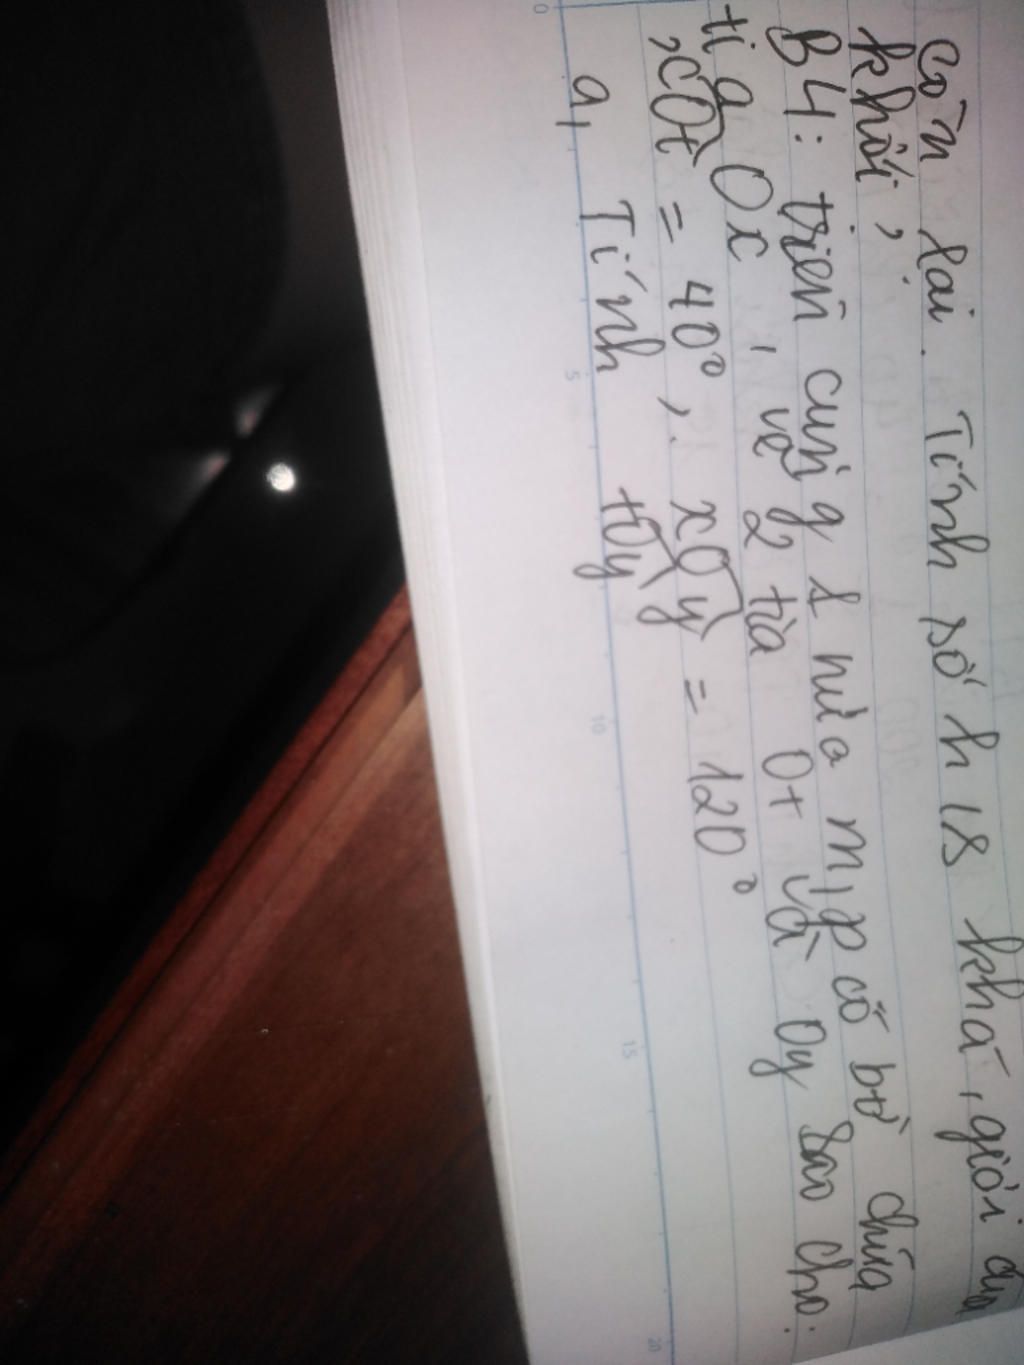 còn lại. Tính số h is khá, giỏi của
khối,
B4: trên cùng 1 nửa m,p có bờ chứa
tia Ox, vẽ 2 tia Ot và Oy sao cho:
xOt = 40°, xOy = 120°
a, Tính tOy
0 5 10 15 20